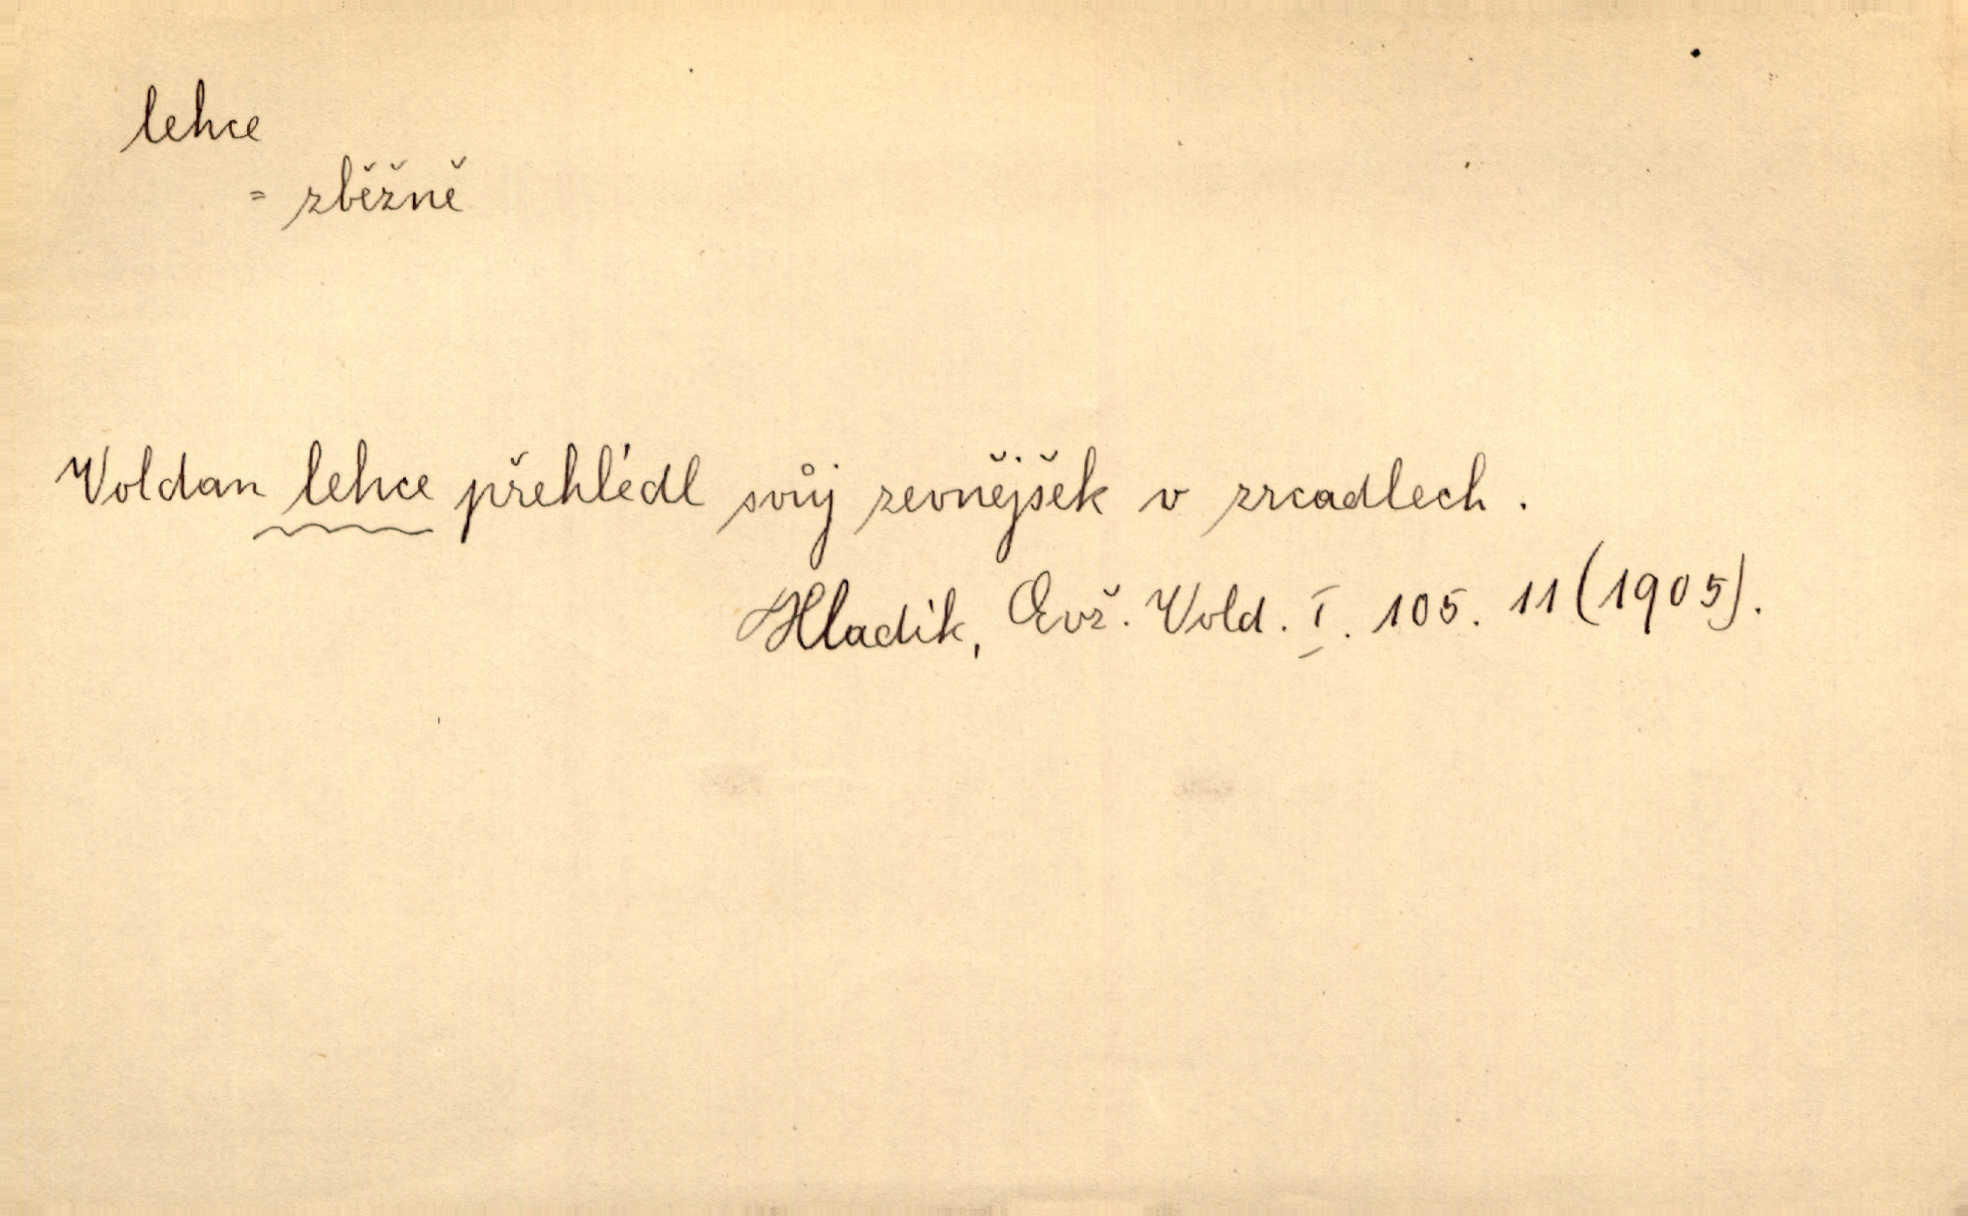 lehce
= zběžně
Voldan lehce přehlédl svůj zevnějšek v zrcadlech.
Hladík, Evž. Vold. I. 105. 11 (1905).